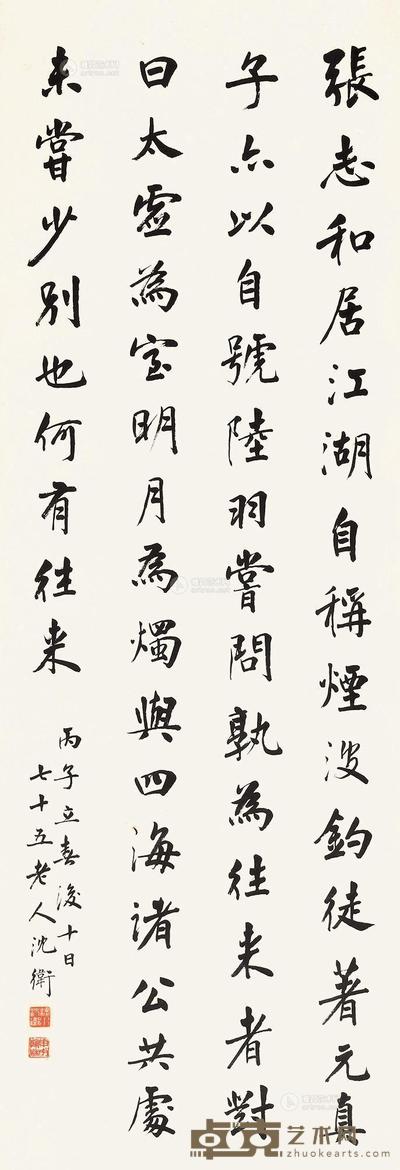 張志和居江湖自稱煙波釣徒著元真
子亦以自號陸羽嘗問孰為往来者對
曰太虛為室明月為燭與四海諸公共處
未嘗少别也何有往来
丙子立春後十日
七十五老人沈衛
卓克艺术网
zhuokearts.com